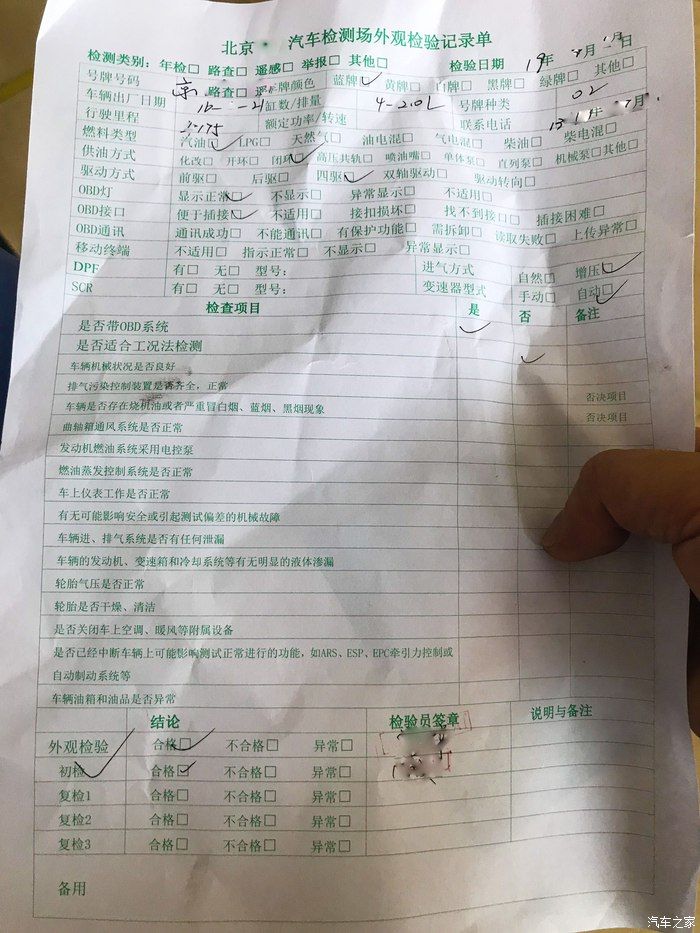 北京 汽车检测场外观检验记录单
检测类别：年检□ 路查□ 遥感□ 举报□ 其他□ 检验日期 19年 月 日
号牌号码 京 牌颜色 蓝牌✓ 黄牌□ 白牌□ 黑牌□ 绿牌□ 其他□
车辆出厂日期 缸数/排量 4-2.0L 号牌种类 02
行驶里程 额定功率/转速 联系电话
燃料类型 汽油☑ LPG□ 天然气□ 油电混□ 气电混□ 柴油□ 柴电混□
供油方式 化改□ 开环□ 闭环☑ 高压共轨□ 喷油嘴□ 单体泵□ 直列泵□ 机械泵□ 其他□
驱动方式 前驱□ 后驱□ 四驱☑ 双轴驱动□ 驱动转向□
OBD灯 显示正常☑ 不显示□ 异常显示□ 不适用□
OBD接口 便于插接☑ 不适用□ 接扣损坏□ 找不到接口□ 插接困难□
OBD通讯 通讯成功□ 不能通讯□ 有保护功能□ 需拆卸□ 读取失败□ 上传异常□
移动终端 不适用□ 指示正常□ 不显示□ 异常显示□
DPF 有□ 无□ 型号： 进气方式 自然□ 增压☑
SCR 有□ 无□ 型号： 变速器型式 手动□ 自动☑
检查项目 是 否 备注
是否带OBD系统 ✓
是否适合工况法检测 ✓
车辆机械状况是否良好
排气污染控制装置是否齐全，正常 否决项目
车辆是否存在烧机油或者严重冒白烟、蓝烟、黑烟现象 否决项目
曲轴箱通风系统是否正常
发动机燃油系统采用电控泵
燃油蒸发控制系统是否正常
车上仪表工作是否正常
有无可能影响安全或引起测试偏差的机械故障
车辆进、排气系统是否有任何泄漏
车辆的发动机、变速箱和冷却系统等有无明显的液体渗漏
轮胎气压是否正常
轮胎是否干燥、清洁
是否关闭车上空调、暖风等附属设备
是否已经中断车辆上可能影响测试正常进行的功能，如ARS、ESP、EPC牵引力控制或
自动制动系统等
车辆油箱和油品是否异常
结论 检验员签章 说明与备注
外观检验 合格☑ 不合格□ 异常□
初检 合格☑ 不合格□ 异常□
复检1 合格□ 不合格□ 异常□
复检2 合格□ 不合格□ 异常□
复检3 合格□ 不合格□ 异常□
备用
汽车之家